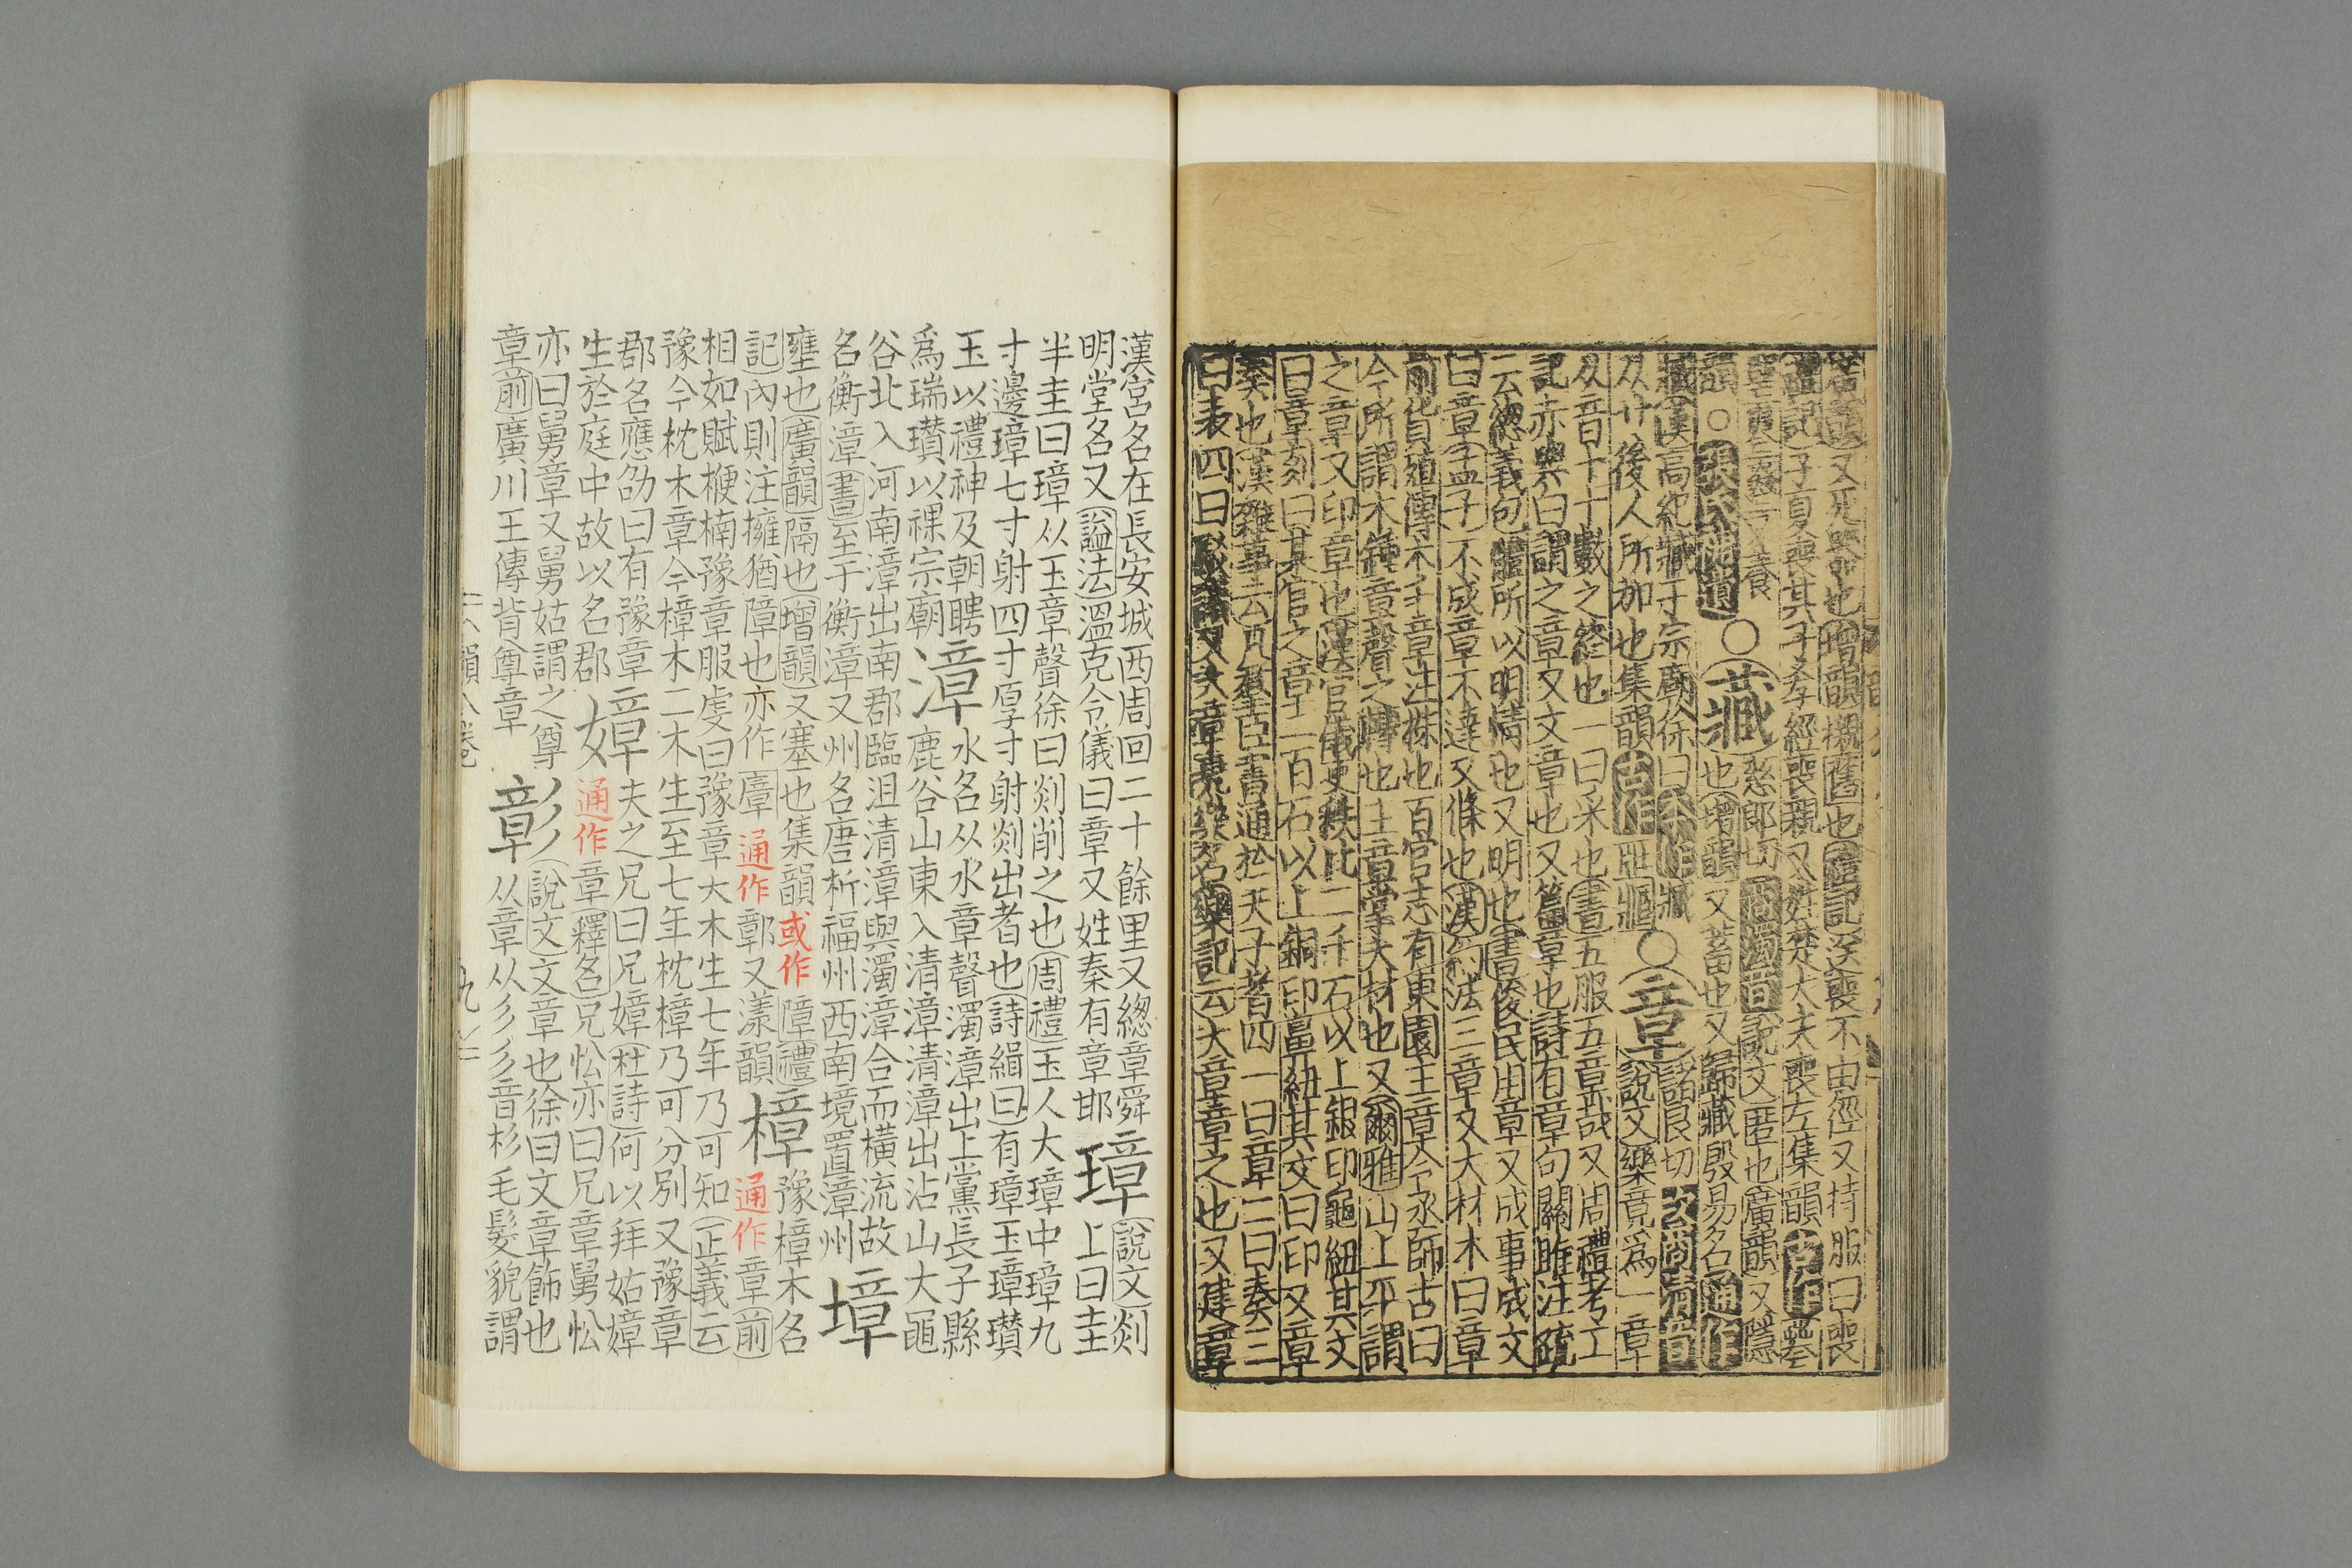 居喪又死喪也增韻櫬舊也禮記送喪不由徑又持服曰喪
禮記子夏喪其子孝經喪親又姓楚大夫喪左集韻古作
又養
韻○
○藏
慈郎切商濁音說文匿也廣韻又隱
也增韻又蓄也又歸藏殷易名通作
臧漢高紀臧于宗廟徐曰本作臧
从艸後人所加也集韻古作匨
○章
諸良切次商清音
說文樂竟爲一章
从音十十數之終也一曰采也書五服五章哉又周禮考工
記赤與白謂之章又文章也又篇章也詩有章句關雎注疏
云總義包體所以明情也又明也書俊民用章又成事成文
曰章孟子不成章不達又條也漢約法三章又大材木曰章
前貨殖傳木千章注株也百官志有東園主章令丞師古曰
今所謂木鍾章聲之轉也主章掌大材也又爾雅山上平謂
之章又印章也漢官儀吏秩比二千石以上銀印龜紐其文
曰章刻曰某官之章二百石以上銅印鼻紐其文曰印又章
奏也漢雜事云凡羣臣書通於天子者四一曰章二曰奏三
曰表四曰駁議又大章堯樂名樂記云大章章之也又建章
漢宮名在長安城西周回二十餘里又總章舜
明堂名又諡法溫克令儀曰章又姓秦有章邯
璋
說文剡
上曰圭
半圭曰璋从玉章聲徐曰剡削之也周禮玉人大璋中璋九
寸邊璋七寸射四寸厚寸射剡出者也詩緝曰有璋玉璋瓚
玉以禮神及朝聘
爲瑞瓚以祼宗廟
漳
水名从水章聲濁漳出上黨長子縣
鹿谷山東入清漳清漳出沾山大黽
谷北入河南漳出南郡臨沮清漳與濁漳合而橫流故
名衡漳書至于衡漳又州名唐析福州西南境置漳州
墇
壅也廣韻隔也增韻又塞也集韻或作障禮
記內則注擁猶障也亦作廧通作鄣又漾韻
樟
豫樟木名
通作章前
相如賦楩楠豫章服虔曰豫章大木生七年乃可知正義云
豫今枕木章今樟木二木生至七年枕樟乃可分別又豫章
郡名應劭曰有豫章
生於庭中故以名郡
嫜
夫之兄曰兄嫜杜詩何以拜姑嫜
通作章釋名兄忪亦曰兄章舅忪
亦曰舅章又舅姑謂之尊
章前廣川王傳背尊章
彰
說文文章也徐曰文章飾也
从章从彡彡音杉毛髮貌謂
韻八卷
九